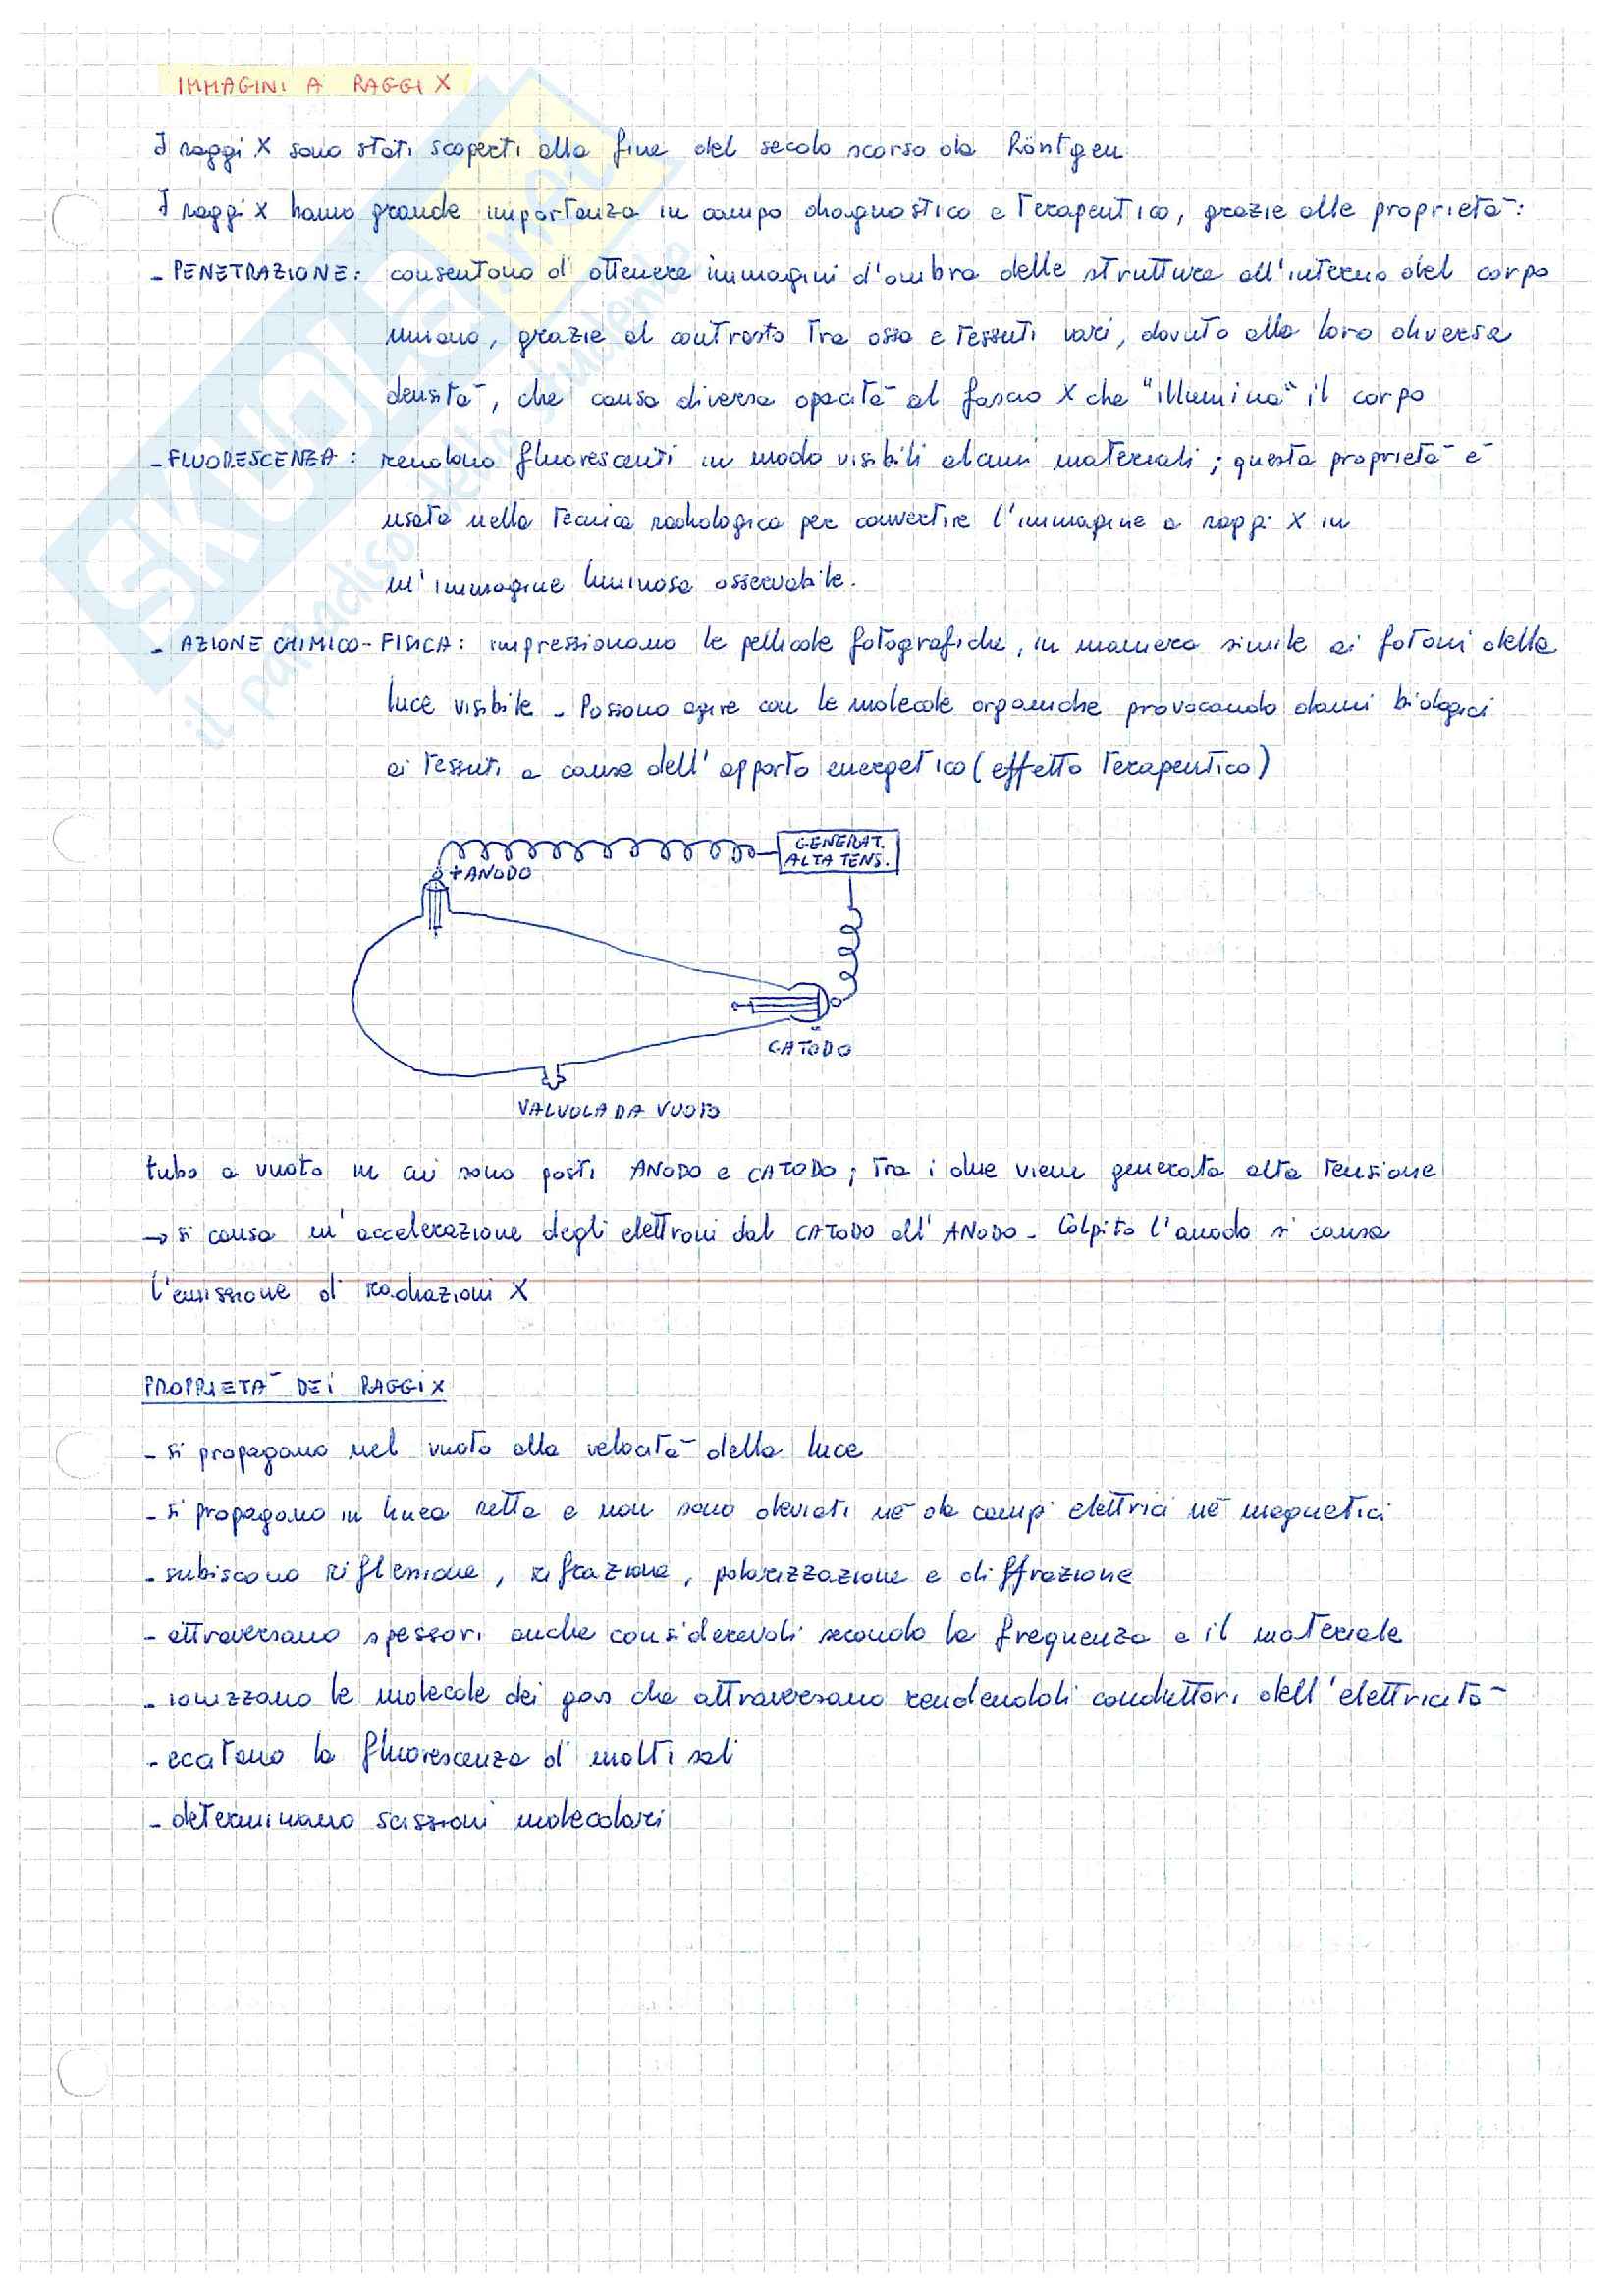 IMMAGINI A RAGGI X
I raggi X sono stati scoperti alla fine del secolo scorso da Röntgen
I raggi X hanno grande importanza in campo diagnostico e terapeutico, grazie alle proprietà:
- PENETRAZIONE: consentono di ottenere immagini d'ombra delle strutture all'interno del corpo
umano, grazie al contrasto tra osso e tessuti vari, dovuto alla loro diversa
densità, che causa diversa opacità al fascio X che "illumina" il corpo
- FLUORESCENZA: rendono fluorescenti in modo visibili alcuni materiali; questa proprietà è
usata nella tecnica radiologica per convertire l'immagine a raggi X in
un'immagine luminosa osservabile.
- AZIONE CHIMICO-FISICA: impressionano le pellicole fotografiche, in maniera simile ai fotoni della
luce visibile - Possono agire con le molecole organiche provocando danni biologici
ai tessuti a causa dell'apporto energetico (effetto terapeutico)
GENERAT.
ALTA TENS.
+ ANODO
-
CATODO
VALVOLA DA VUOTO
tubo a vuoto in cui sono posti ANODO e CATODO; tra i due viene generata alta tensione
→ si causa un'accelerazione degli elettroni dal CATODO all'ANODO - Colpito l'anodo si causa
l'emissione di radiazioni X
PROPRIETÀ DEI RAGGI X
- si propagano nel vuoto alla velocità della luce
- si propagano in linea retta e non sono deviati né da campi elettrici né magnetici
- subiscono riflessione, rifrazione, polarizzazione e diffrazione
- attraversano spessori anche considerevoli secondo la frequenza e il materiale
- ionizzano le molecole dei gas che attraversano rendendoli conduttori dell'elettricità
- eccitano la fluorescenza di molti sali
- determinano scissioni molecolari
SKUOLA.net
il paradiso dello studente